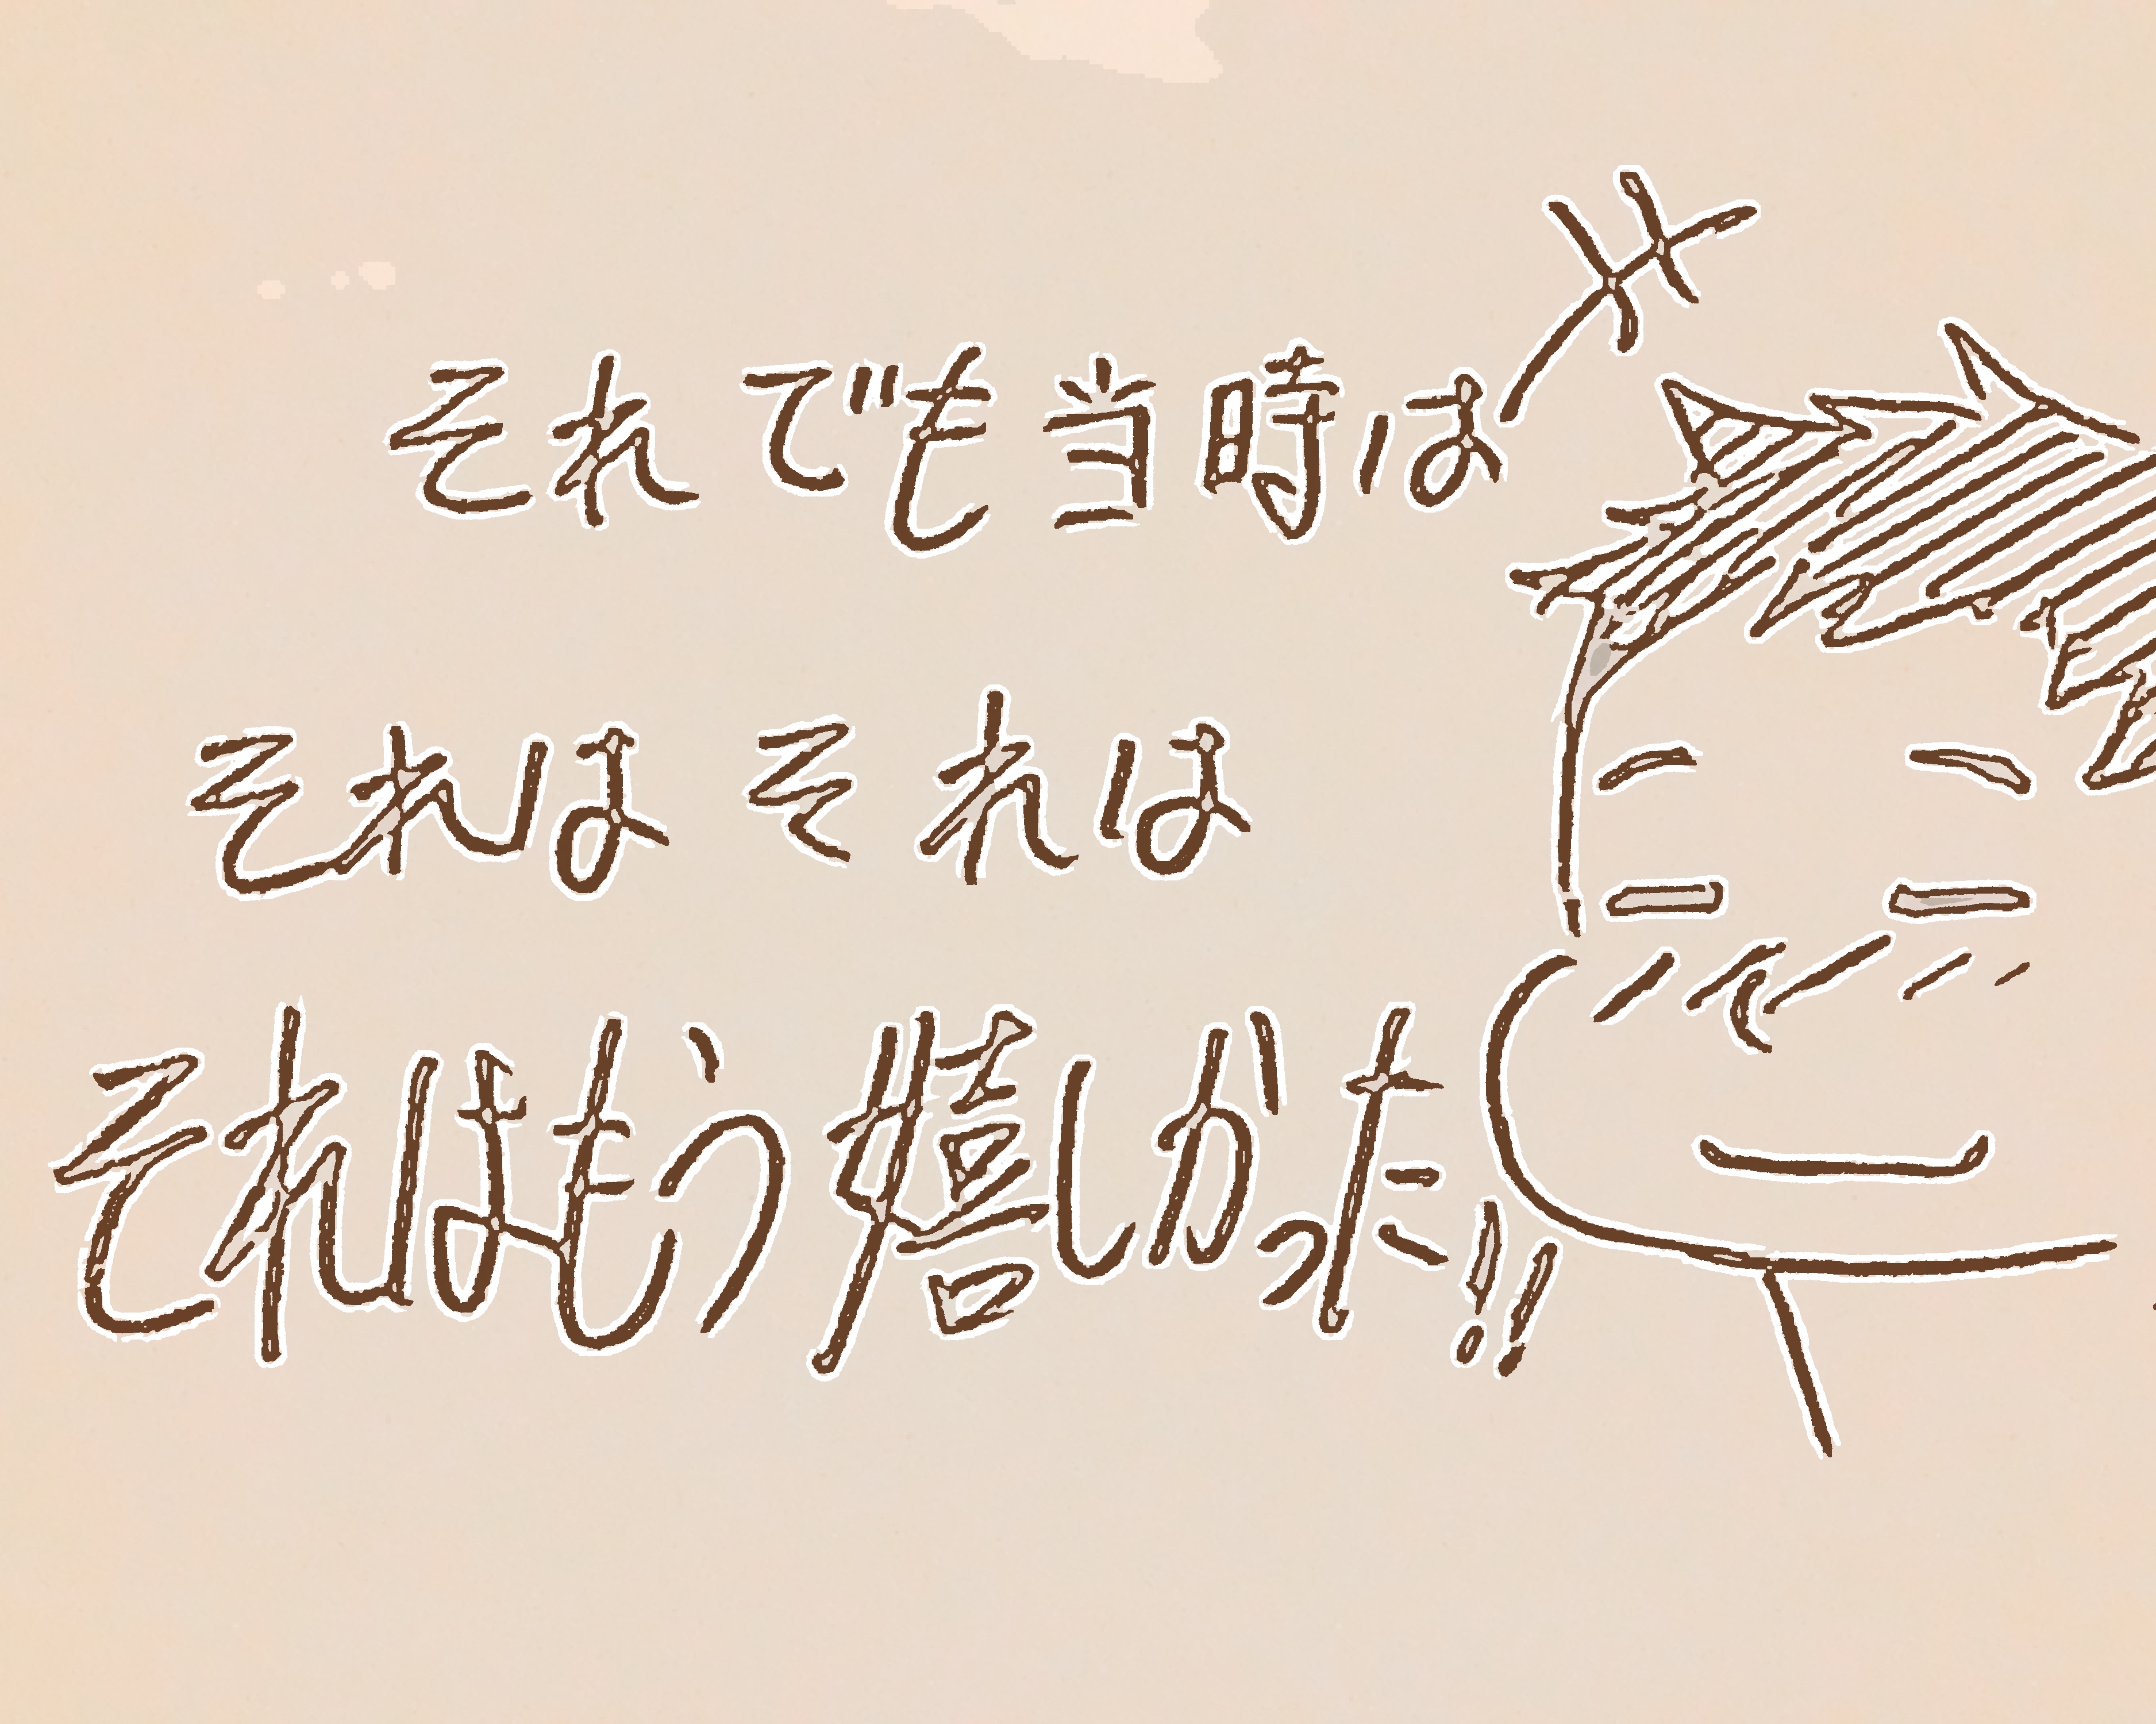 それでも当時は
それはそれは
それはもう嬉しかった!!